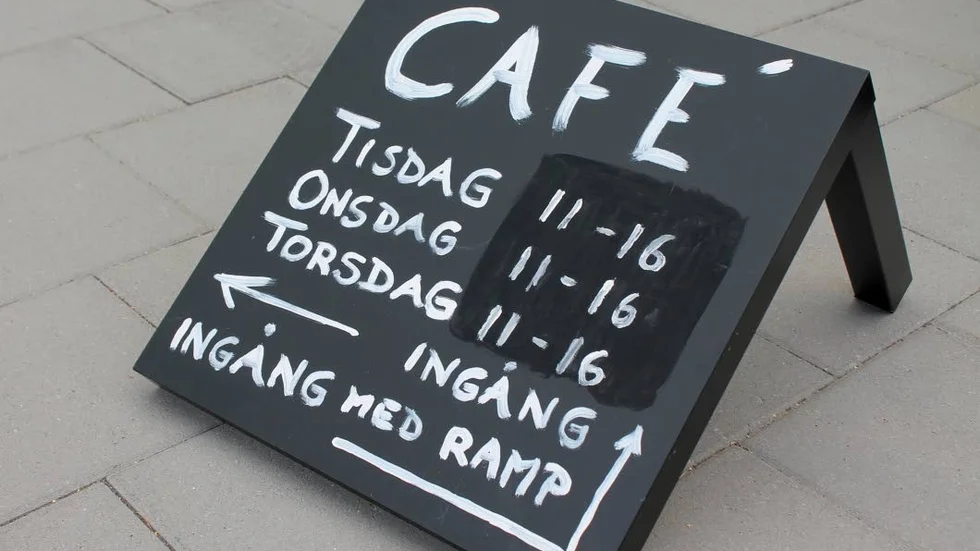 CAFÉ
TISDAG 11-16
ONSDAG 11-16
TORSDAG 11-16
INGÅNG
INGÅNG MED RAMP